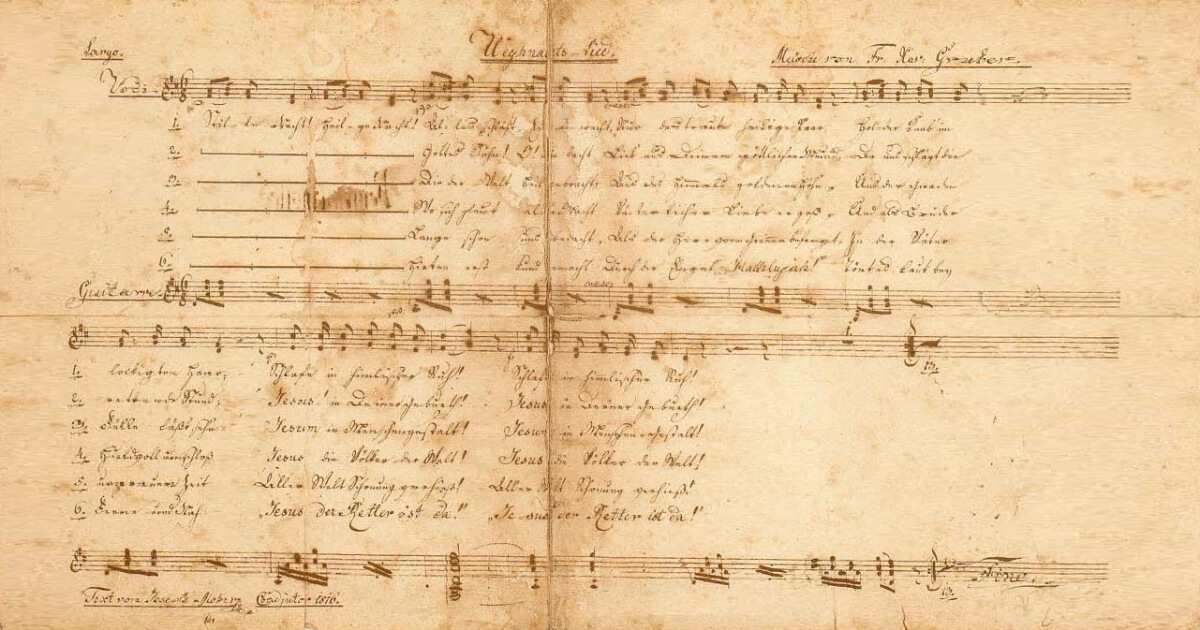 Largo. Weyhnachts-Lied. Melodie von Fr. Xav. Gruber.
Voci
1. Stil-le Nacht! Heil-ge Nacht! Al-les schläft. Nur das traute heilige Paar. Holder Knab im
2. Gottes Sohn! O! wie lacht Lieb aus Deinem göttlichen Mund, Da uns schlägt die
3. Die der Welt Heil gebracht, Aus des Himmels goldenen Höhn, Uns der Gnaden
4. Wo sich heut alle Macht Väterlicher Liebe ergoß, Und als Bruder
5. Lange schon uns bedacht, Als der Herr vom Grimme befreyt, In der Väter
6. Hirten erst kund gemacht Durch der Engel Hallelujah! Tönt es laut bey
cresc.
Guitarre.
cresc.
1. lockigten Haar; Schlafe in himlischer Ruh! Schlafe in himlischer Ruh!
2. rettende Stund, Jesus! in Deiner Geburth! Jesus in Deiner Geburth!
3. Fülle läßt sehn Jesum in Menschengestalt! Jesum in Menschengestalt!
4. Huldvoll umschloß Jesus die Völker der Welt! Jesus die Völker der Welt!
5. urgrauer Zeit Aller Welt Schonung verhieß! Aller Welt Schonung verhieß!
6. Ferne und Nah: „Jesus der Retter ist da!" „Jesus der Retter ist da!"
Fine.
Text von Joseph Mohr Coadjutor 1816.